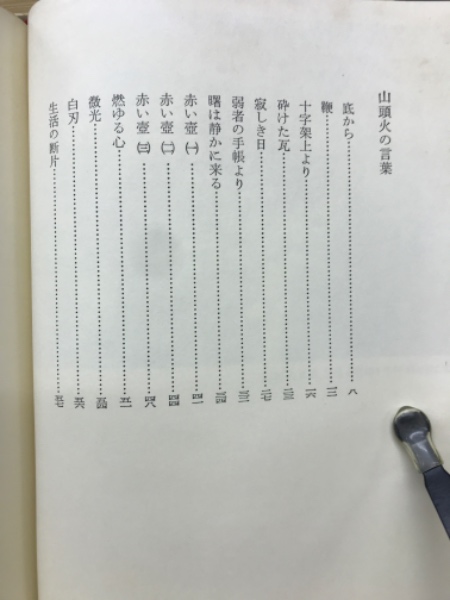 山頭火の言葉
底から……八
鞭……一二
十字架上より……一六
砕けた瓦……
寂しき日……二七
弱者の手帳より……
曙は静かに来る……
赤い壺(一)……四一
赤い壺(二)……四四
赤い壺(三)……四八
燃ゆる心……五一
微光……五四
白刃……五六
生活の断片……五七